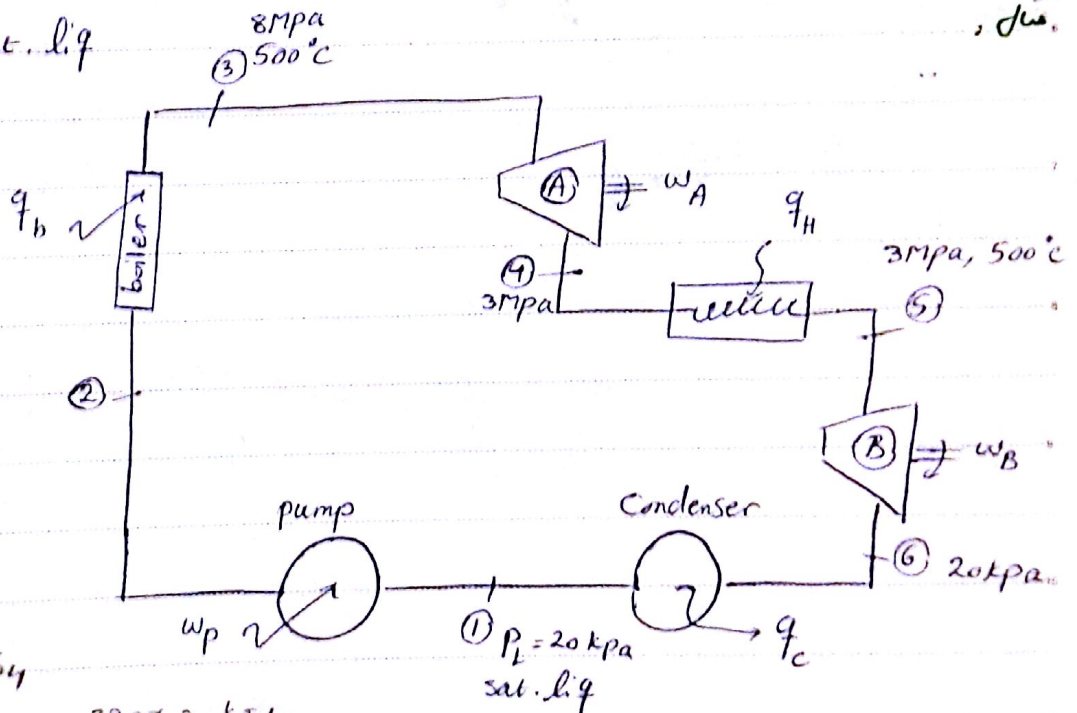 t. liq
8Mpa
③ 500°C
q_b
boiler
Ⓐ
w_A
q_H
④
3Mpa
3Mpa, 500°C
⑤
②
Ⓑ
w_B
pump
Condenser
⑥ 20kpa
w_p
① P_L = 20 kpa
q_c
sat. liq